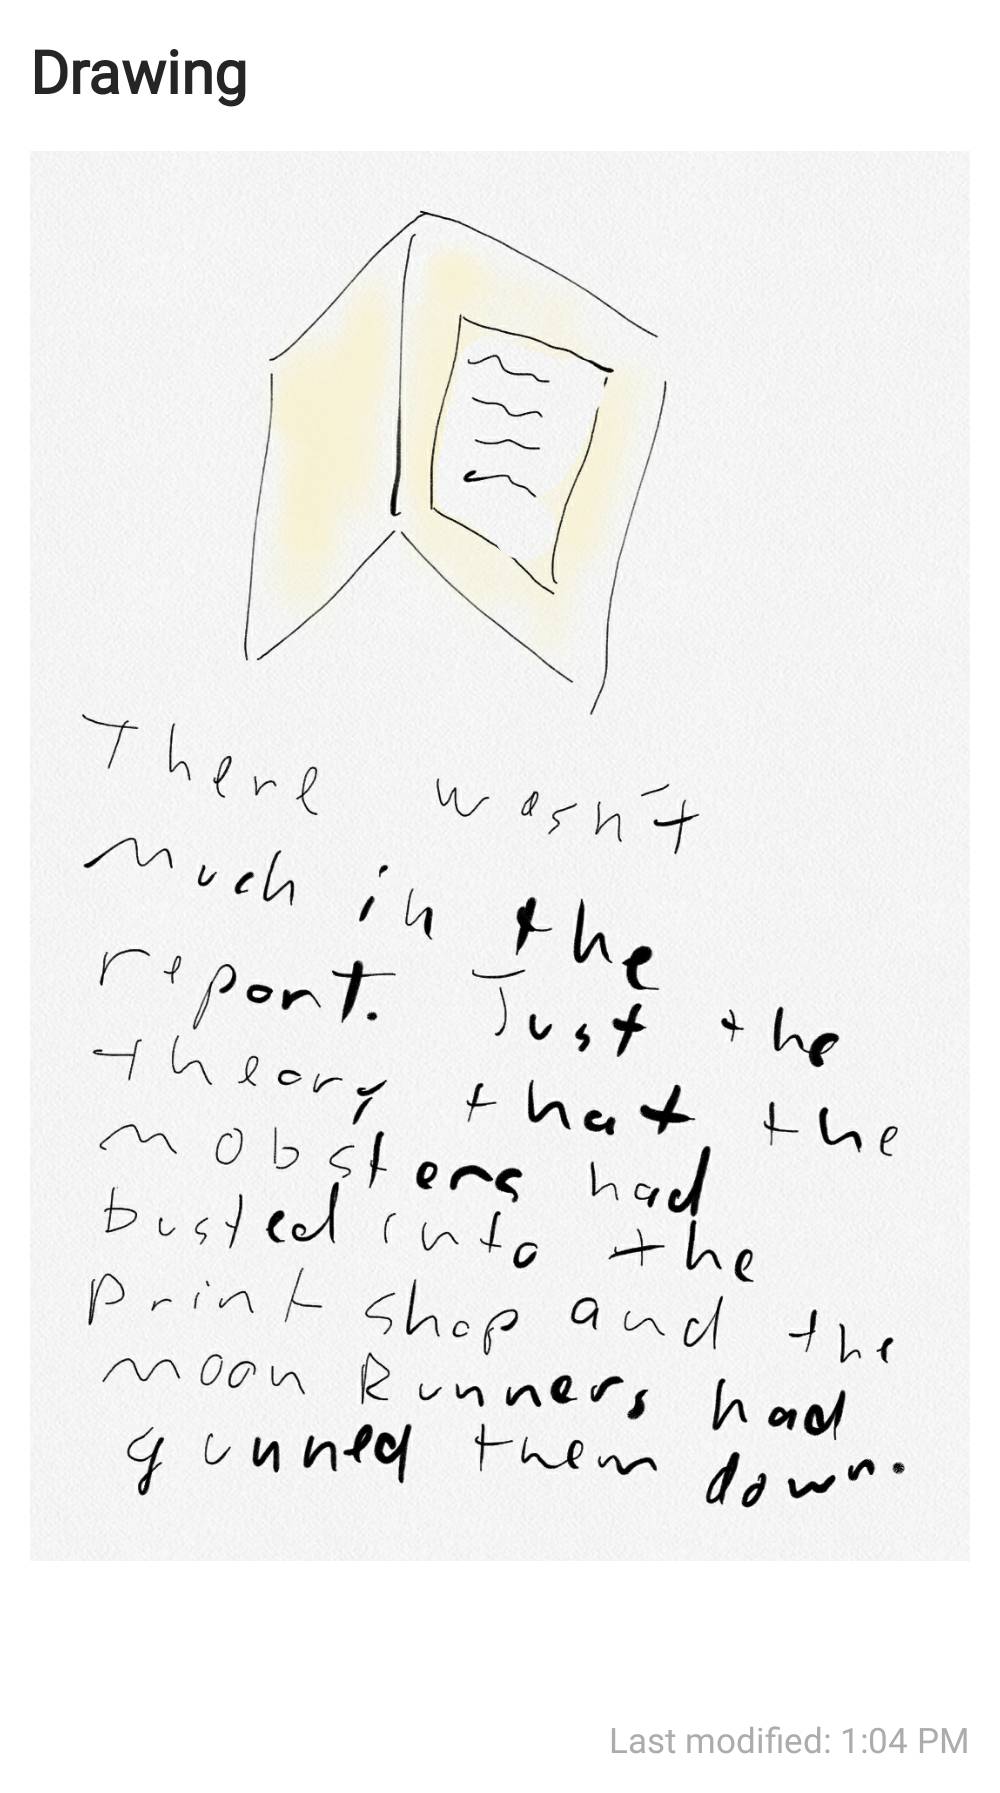 Drawing
There wasn't
much in the
report. Just the
theory that the
mobsters had
busted into the
print shop and the
moon Runners had
gunned them down.
Last modified: 1:04 PM